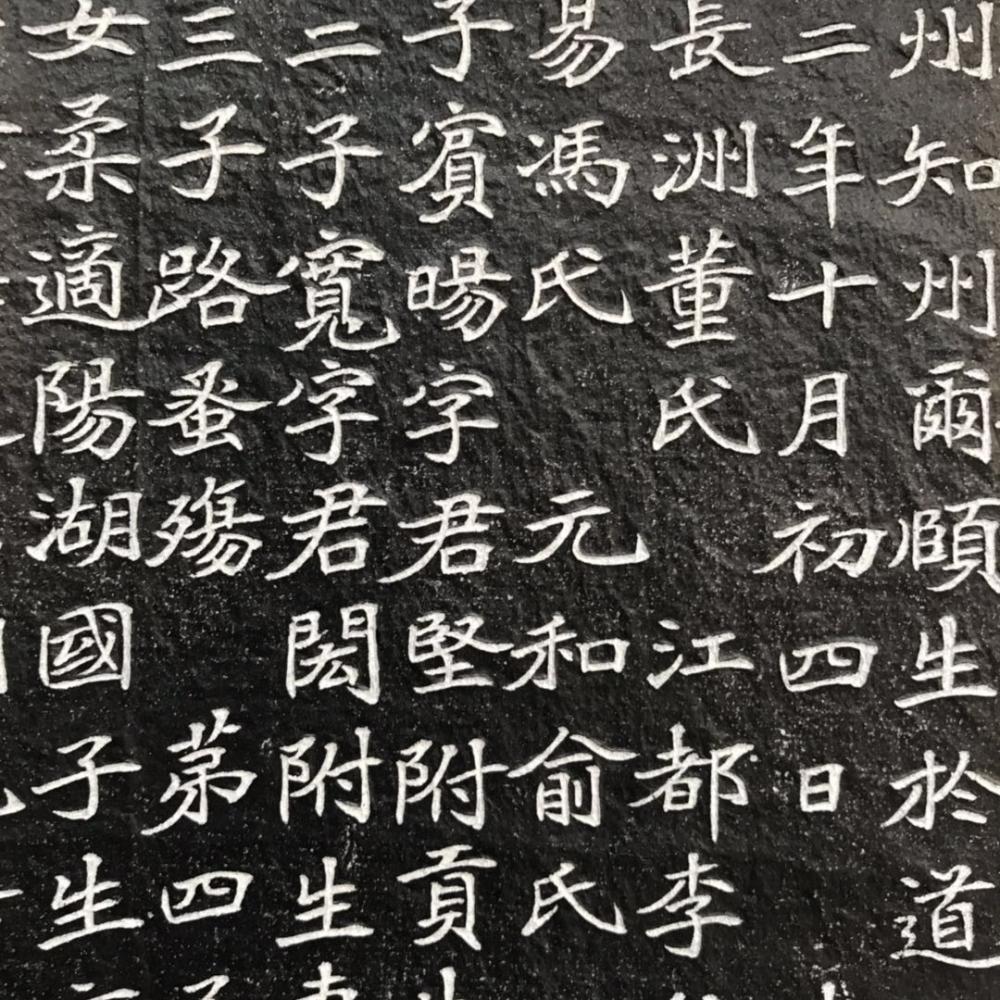 州知州爾頤生於道
二年十月初四日
長洲董氏 江都李
易馮氏 元和俞氏
子賓暘字君堅附貢
二子寬字君閎附生
三子路蚤殤 苐四
女柔適陽湖國子生